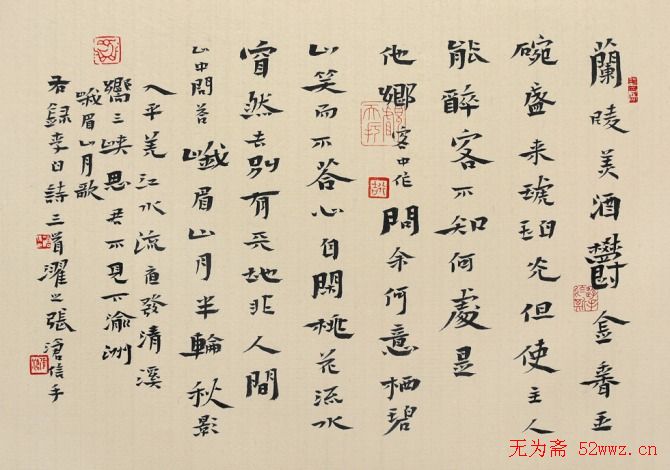 蘭陵美酒鬱金香玉
碗盛来琥珀光但使主人
能醉客不知何處是
他鄉 客中作 問余何意栖碧
山笑而不答心自閑桃花流水
窅然去別有天地非人間
山中問答 峨眉山月半輪秋影
入平羌江水流夜發清溪
嚮三峽思君不見下渝洲
峨眉山月歌
右錄李白詩三首濯之張滄信手
无为斋 52wwz.cn